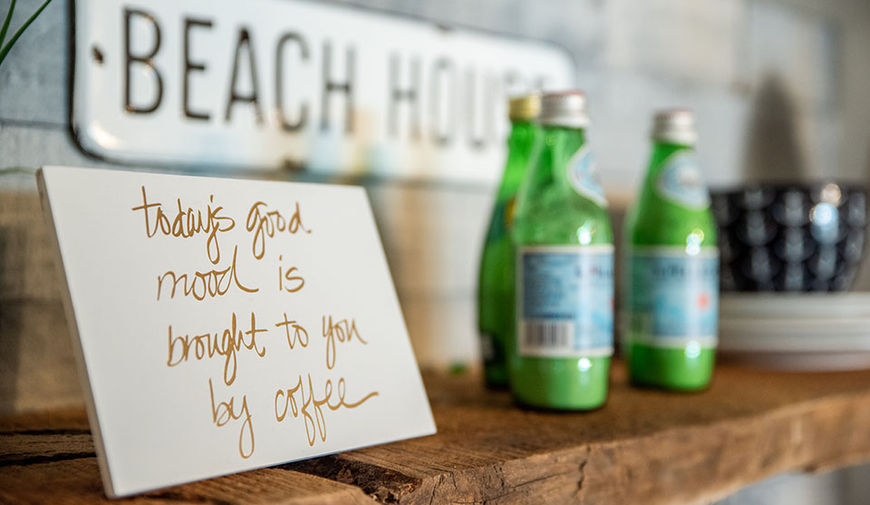 BEACH HOUSE
today's good
mood is
brought to you
by coffee